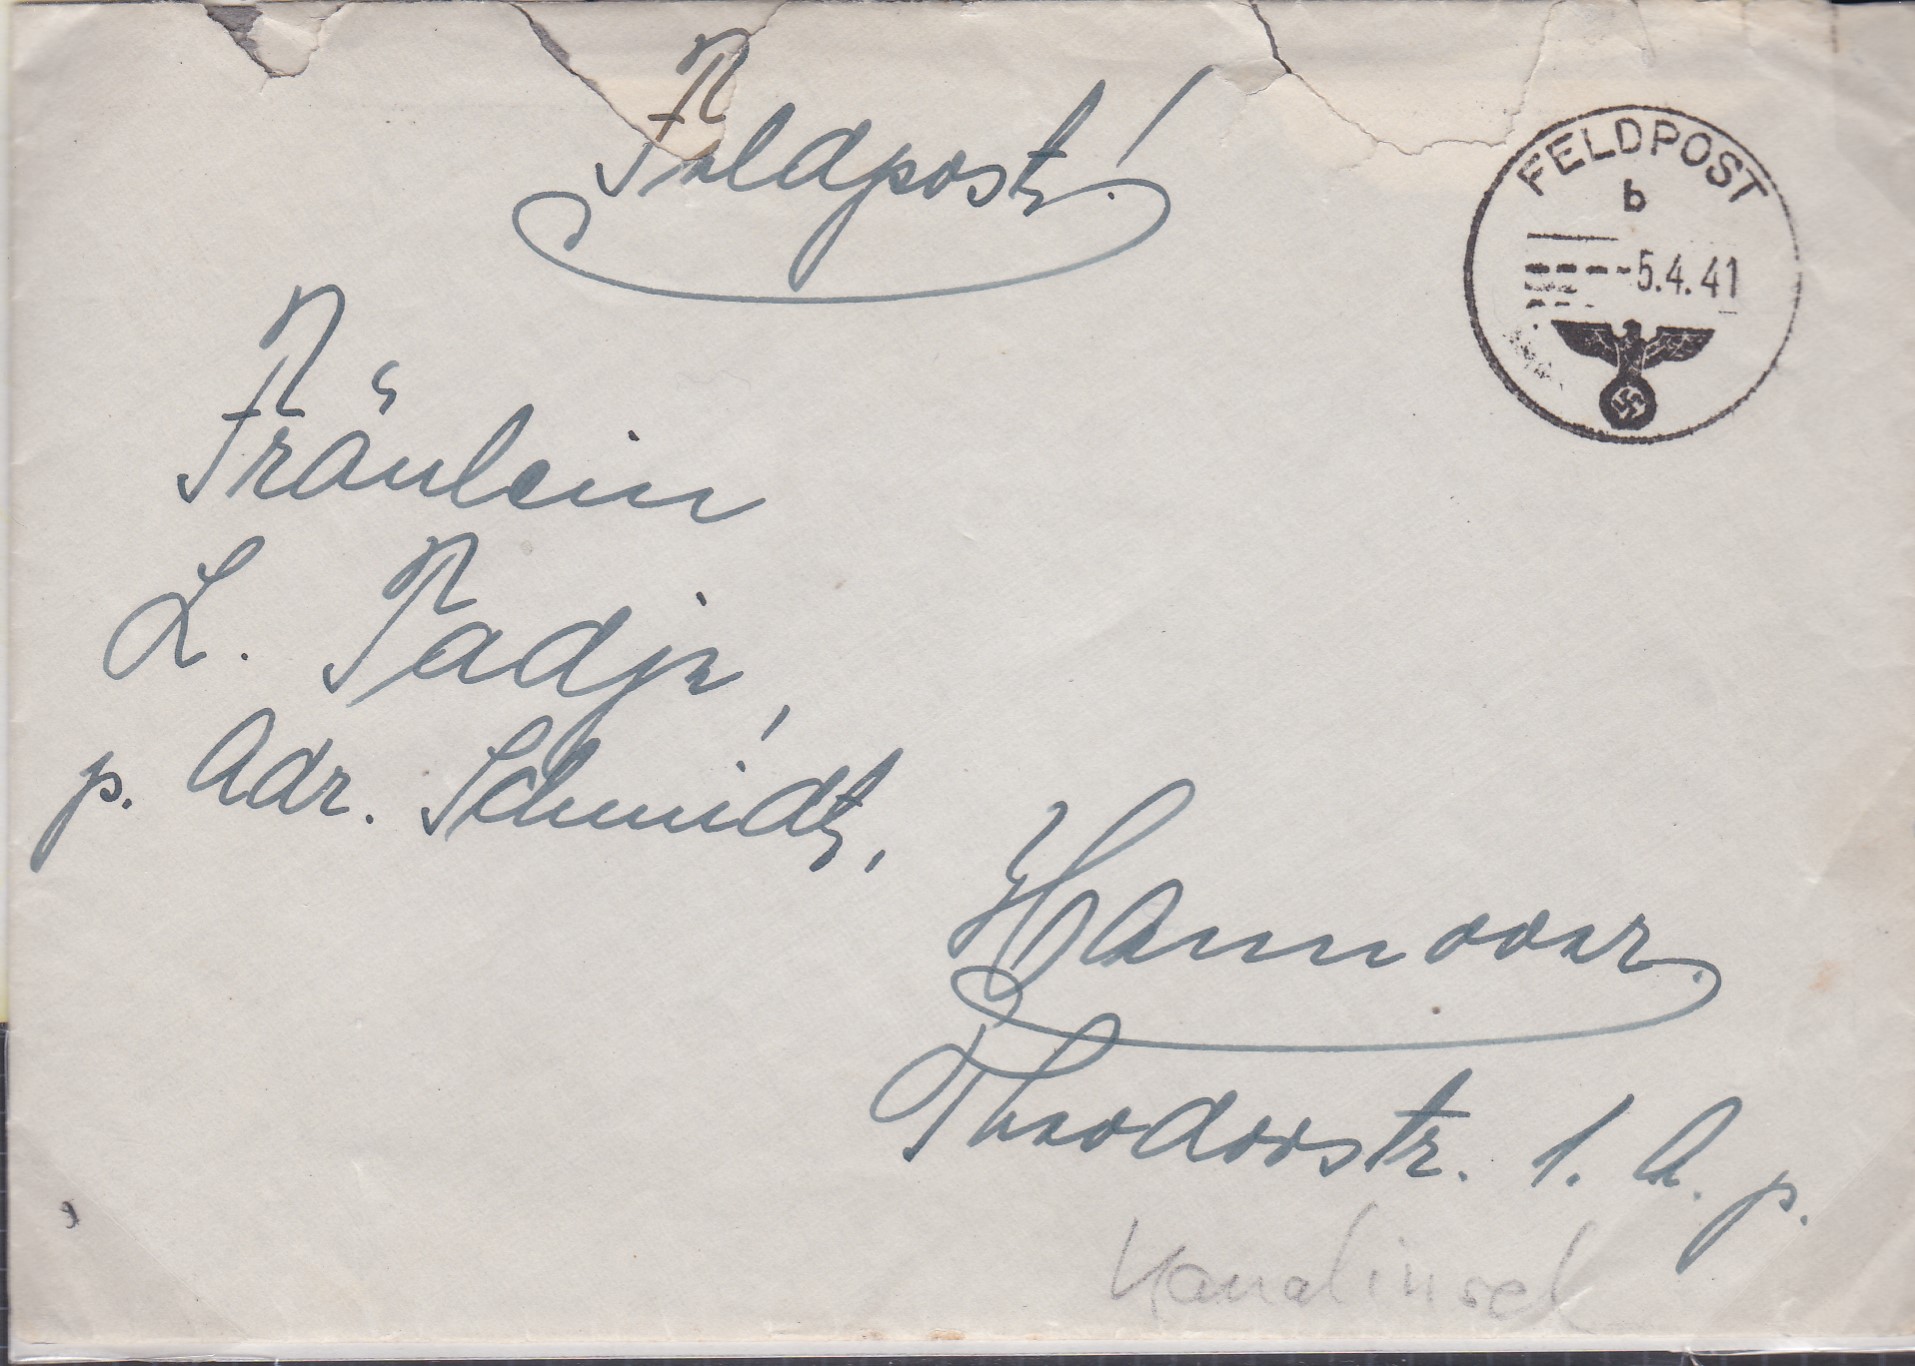 Feldpost!
FELDPOST
b
-5.4.41
Fräulein
L. Tadje,
p. Adr. Schmidt,
Hannover.
Theodorstr. 1. A. p.
Kanalinsel